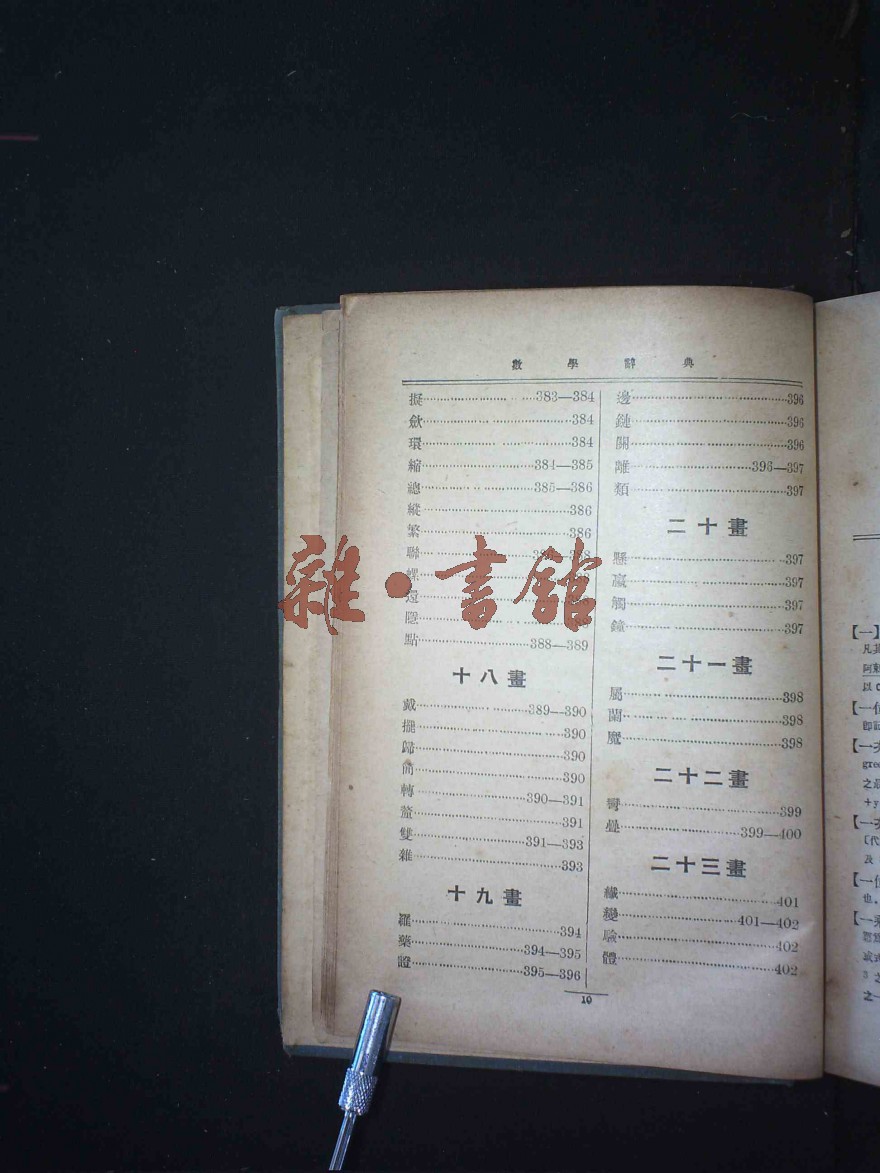 數學辭典
擬 383—384
斂 384
環 384
縮 384—385
總 385—386
縱 386
繁 386
聯
螺
還
隱
點 388—389
十八畫
戴 389—390
擺 390
歸 390
簡 390
轉 390—391
雙 391—393
雜 393
十九畫
羅 394
藥 394—395
證 395—396
邊 396
鏈 396
關 396
離 396—397
類 397
二十畫
懸 397
397
觸 397
鐘 397
二十一畫
屬 398
蘭 398
魔 398
二十二畫
彎 399
疊 399—400
二十三畫
纖 401
變 401—402
驗 402
體 402
10
雜·書館
【一】
【一
【一次
【一
〔代
及
【一位
也。
【一乘
之一